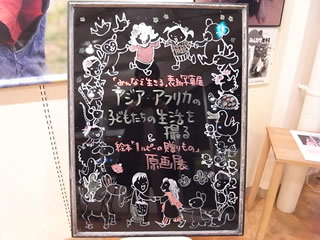 「みんな生きる」表紙写真展
アジア・アフリカの
子どもたちの生活を
撮る
&
絵本「ルビーの贈りもの」
原画展